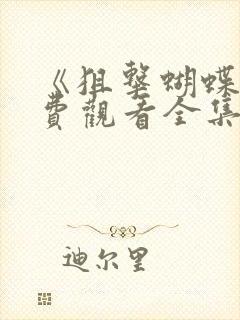 《狙擊蝴蝶
費觀看全集
迪尔里